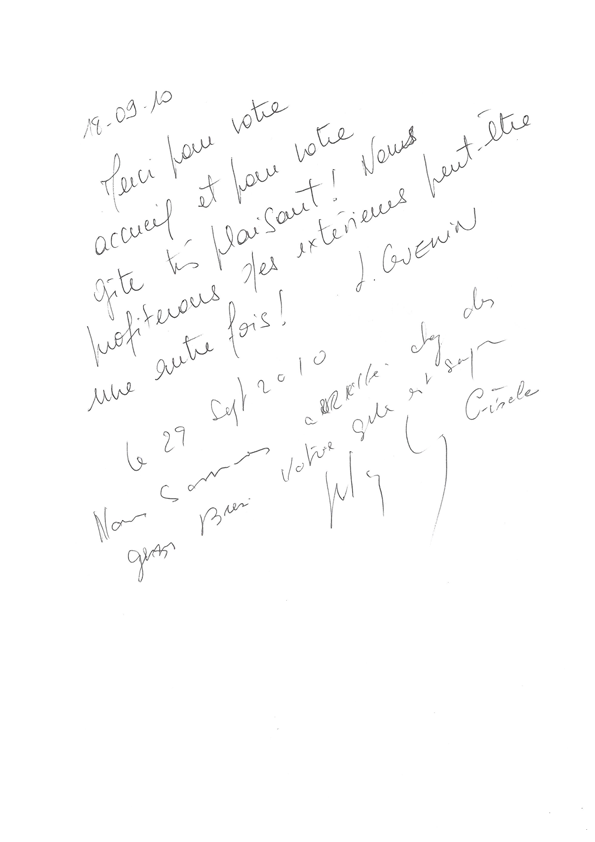 18-09-10
Merci pour votre
accueil et pour votre
gîte très plaisant! Nous
profiterons des extérieurs peut-être
une autre fois!
J. GUENIN
le 29 Sept 2010
Nous Sommes chez des
gens Bien Votre gite est
Gisele